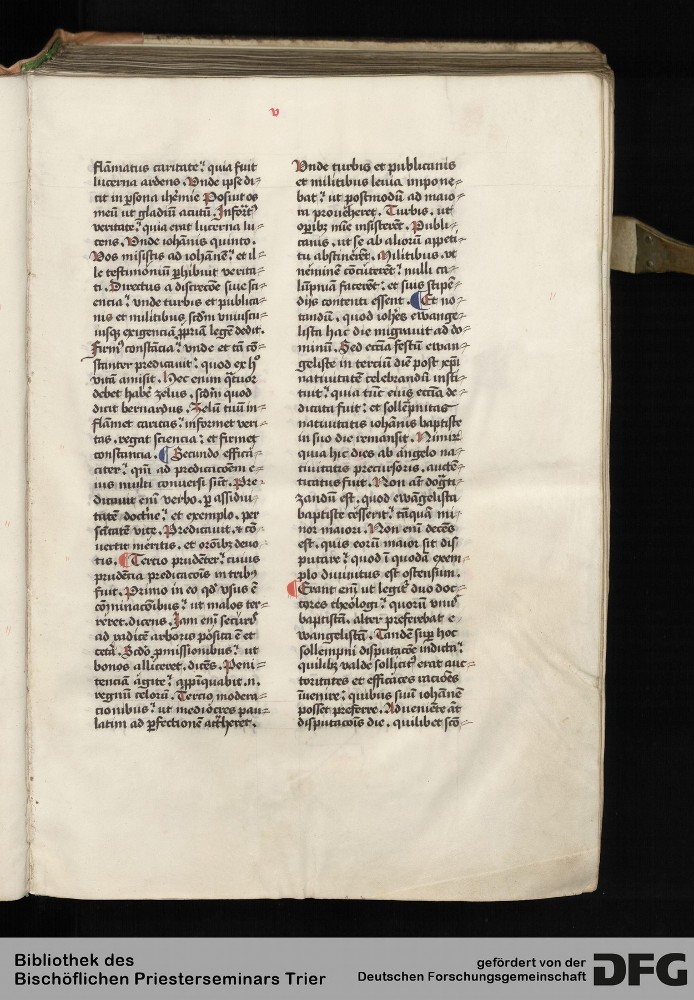 v
flāmatus caritate? quia fuit
lucerna ardens. Vnde ipse di-
cit in ꝑsona ihēmie Posuit os
meū ut gladiū acutū. Infor̄t9
veritate? quia erat lucerna lu-
cens. Vnde iohānis quinto.
Vos misistis ad iohānē? et il-
le testimoniū ꝑhibuit verita-
ti. Directus a discretōe siue sci-
encia? vnde turbis et publica-
nis et militibus scd̄m vniuscu-
iusqꝫ exigenciā ꝓpriā legē dedit.
Firm9 constācia? vnde et tā cō-
stanter predicauit? quod ex h°
vitā amisit. Hec enim q̄tuor
debet habē zelus. scd̄m quod
dicit bernardus. Zelū tuū in-
flāmet caritas? informet veri-
tas. regat sciencia? et firmet
constancia. ¶ Secundo efficā-
citer? qm̄ ad predicacōem e-
ius multi conuersi sūt. Pre-
dicauit enī verbo. ꝑ assidui-
tatē doctⁱe? et exemplo. per
sc̄itatē vite. Predicauit et cō-
uertit meritis. et orōibꝫ deuo-
tis. ¶ Tercio prudēter? cuius
prudēcia predicacōis in tribꝫ
fuit. Primo in eo qd̄ vsus ē
cōminacōnibus? ut malos ter-
reret. dicens. Iam enī securis
ad radicē arboris pōsita ē et
cetā. Scd̄o ꝓmissionibus? ut
bonos alliceret. dicēs. Peni-
tenciā āgite? aꝓpīquabit. n.
regnū celorū. Tercio modera-
cionibus? ut mediōcres pau-
latim ad ꝑfectionē att̄heret.
Vnde turbis et publicanis
et militibus leuia impone-
bat? ut postmodū ad maio-
ra proueheret. Turbis. ut
oꝑibꝫ mīe insisterēt. Publi-
canis. ut se ab aliorū appeti-
tu abstinerēt. Militibus. vt
neminē cōcuterēt? nulli ca-
lūpniā facerēt? et suis stipē-
dijs contenti essent. ¶ Et no-
tandū. quod ioh̄es ewange-
lista hac die migrauit ad do-
minū. Sed eccīa festū ewan-
geliste in terciū diē post xp̄i
natiuitatē celebrandū insti-
tuit? quia tūc eius eccīa de-
dicata fuit? et sollēpnitas
natiuitatis iohānis baptiste
in suo die remansit. Nimir̄
quia hic dies ab āngelo na-
tiuitatis precursoris. auctē-
ticatus fuit. Non aūt dog̅ti-
zandū est. quod ewāgelista
baptiste cesserit? tāquā mi-
nor maiori. Non enī decēs
est. quis eorū maior sit dis
putare? quod ī quodā exem-
plo diuinitus est ostensum.
¶ Erant enī ut legit̄ duo doc-
tores theōlogi? quorū vnus
baptistā. alter preferebat e-
wangelistā. Tandē suꝑ hoc
sollempni disputacōe indicta?
quilibꝫ valde sollicit9 erat auc-
toritates et efficaces racōes
īuenire? quibus suū iohānē
posset preferre. Adueniēte āt
disputacōis die. quilibet scō-
Bibliothek des
Bischöflichen Priesterseminars Trier
gefördert von der
Deutschen Forschungsgemeinschaft
DFG